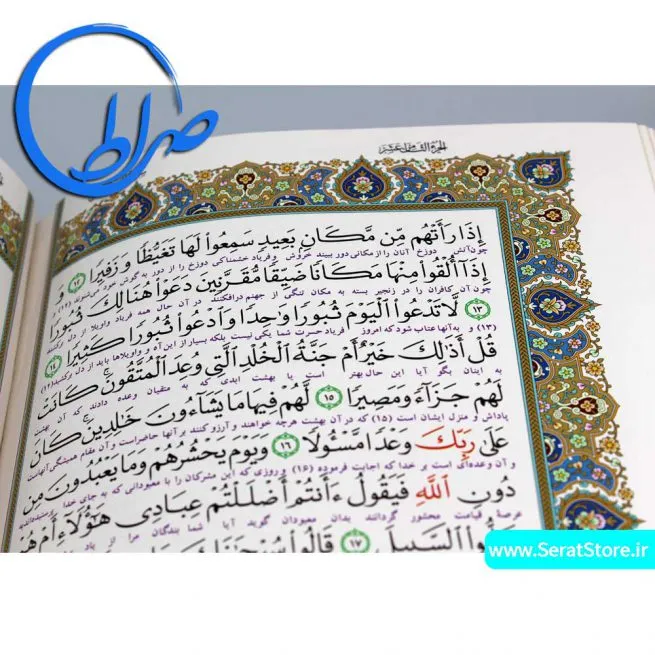 صراط
الجزء الثامن عشر
إِذَا رَأَتْهُم مِّن مَّكَانٍ بَعِيدٍ سَمِعُوا۟ لَهَا تَغَيُّظًا وَ زَفِيرًا ۱۲ وَ
چون آتش دوزخ آنان را از مکانی دور ببیند خروش و فریاد خشمناکی دوزخ را از دور به گوش خود می‌شنوند (۱۲) و
إِذَآ أُلْقُوا۟ مِنْهَا مَكَانًا ضَيِّقًا مُّقَرَّنِينَ دَعَوْا۟ هُنَالِكَ ثُبُورًا
چون آن کافران را در زنجیر بسته به مکان تنگی از جهنم درافکنند در آن حال همه فریاد واویلا از دل برکشند
۱۳ لَّا تَدْعُوا۟ ٱلْيَوْمَ ثُبُورًا وَٰحِدًا وَٱدْعُوا۟ ثُبُورًا كَثِيرًا ۱۴
(۱۳) و به آنها عتاب شود که امروز فریاد حسرت شما یکی نیست بلکه بسیار از این آه و واویلاها باید از دل برکشید (۱۴)
قُلْ أَذَٰلِكَ خَيْرٌ أَمْ جَنَّةُ ٱلْخُلْدِ ٱلَّتِي وُعِدَ ٱلْمُتَّقُونَ كَانَتْ
به اینان بگو آیا این حال بهتر است یا بهشت ابدی که به متقیان وعده دادند که آن بهشت
لَهُمْ جَزَآءً وَمَصِيرًا ۱۵ لَّهُمْ فِيهَا مَا يَشَآءُونَ خَٰلِدِينَ كَانَ
پاداش و منزل ایشان است (۱۵) که در آن بهشت هرچه خواهند و آرزو کنند بر آنها حاضر است و آن مقام همیشگی آنهاست
عَلَىٰ رَبِّكَ وَعْدًا مَّسْـُٔولًا ۱۶ وَيَوْمَ يَحْشُرُهُمْ وَمَا يَعْبُدُونَ مِن
و آن وعده‌ای است بر خدا که اجابت فرموده (۱۶) و روزی که این مشرکان را با معبودانی که به جای خدا
دُونِ ٱللَّهِ فَيَقُولُ ءَأَنتُمْ أَضْلَلْتُمْ عِبَادِي هَٰٓؤُلَآءِ أَمْ هُمْ
عرصهٔ قیامت محشور گردانند بدان معبودان گوید آیا شما بندگان مرا از یاد
ٱلسَّبِيلَ ۱۷ قَالُوا۟ سُبْحَٰنَكَ
www.SeratStore.ir